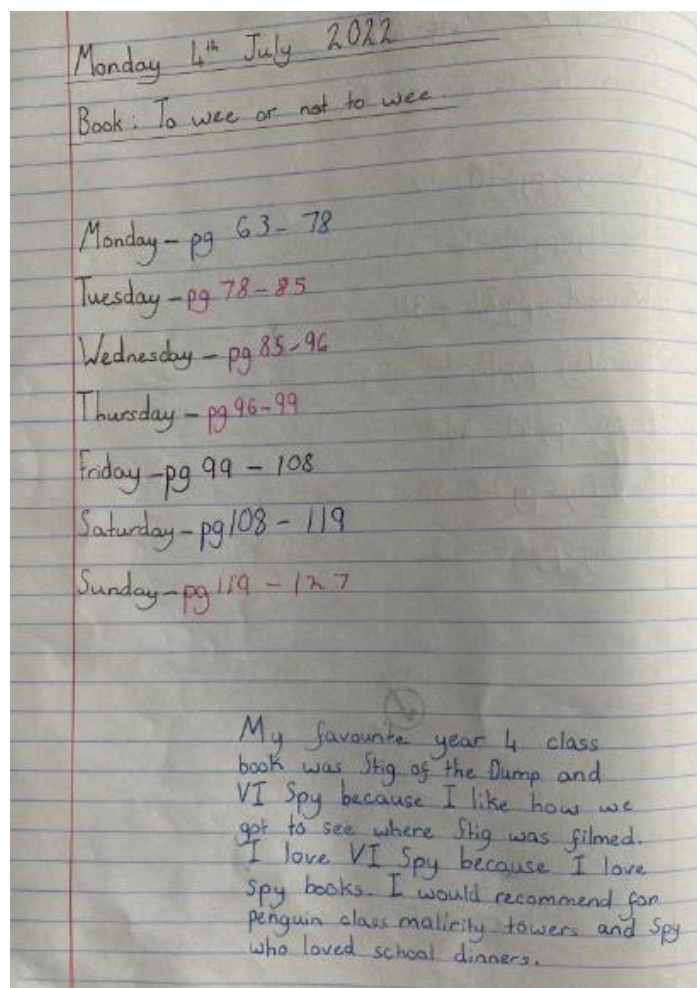 Monday 4th July 2022
Book: To wee or not to wee.
Monday - pg 63 - 78
Tuesday - pg 78 - 85
Wednesday - pg 85 - 96
Thursday - pg 96 - 99
Friday - pg 99 - 108
Saturday - pg 108 - 119
Sunday - pg 119 - 127
My favourite year 4 class
book was Stig of the Dump and
VI Spy because I like how we
got to see where Stig was filmed.
I love VI Spy because I love
spy books. I would recommend for
penguin class malirity towers and Spy
who loved school dinners.